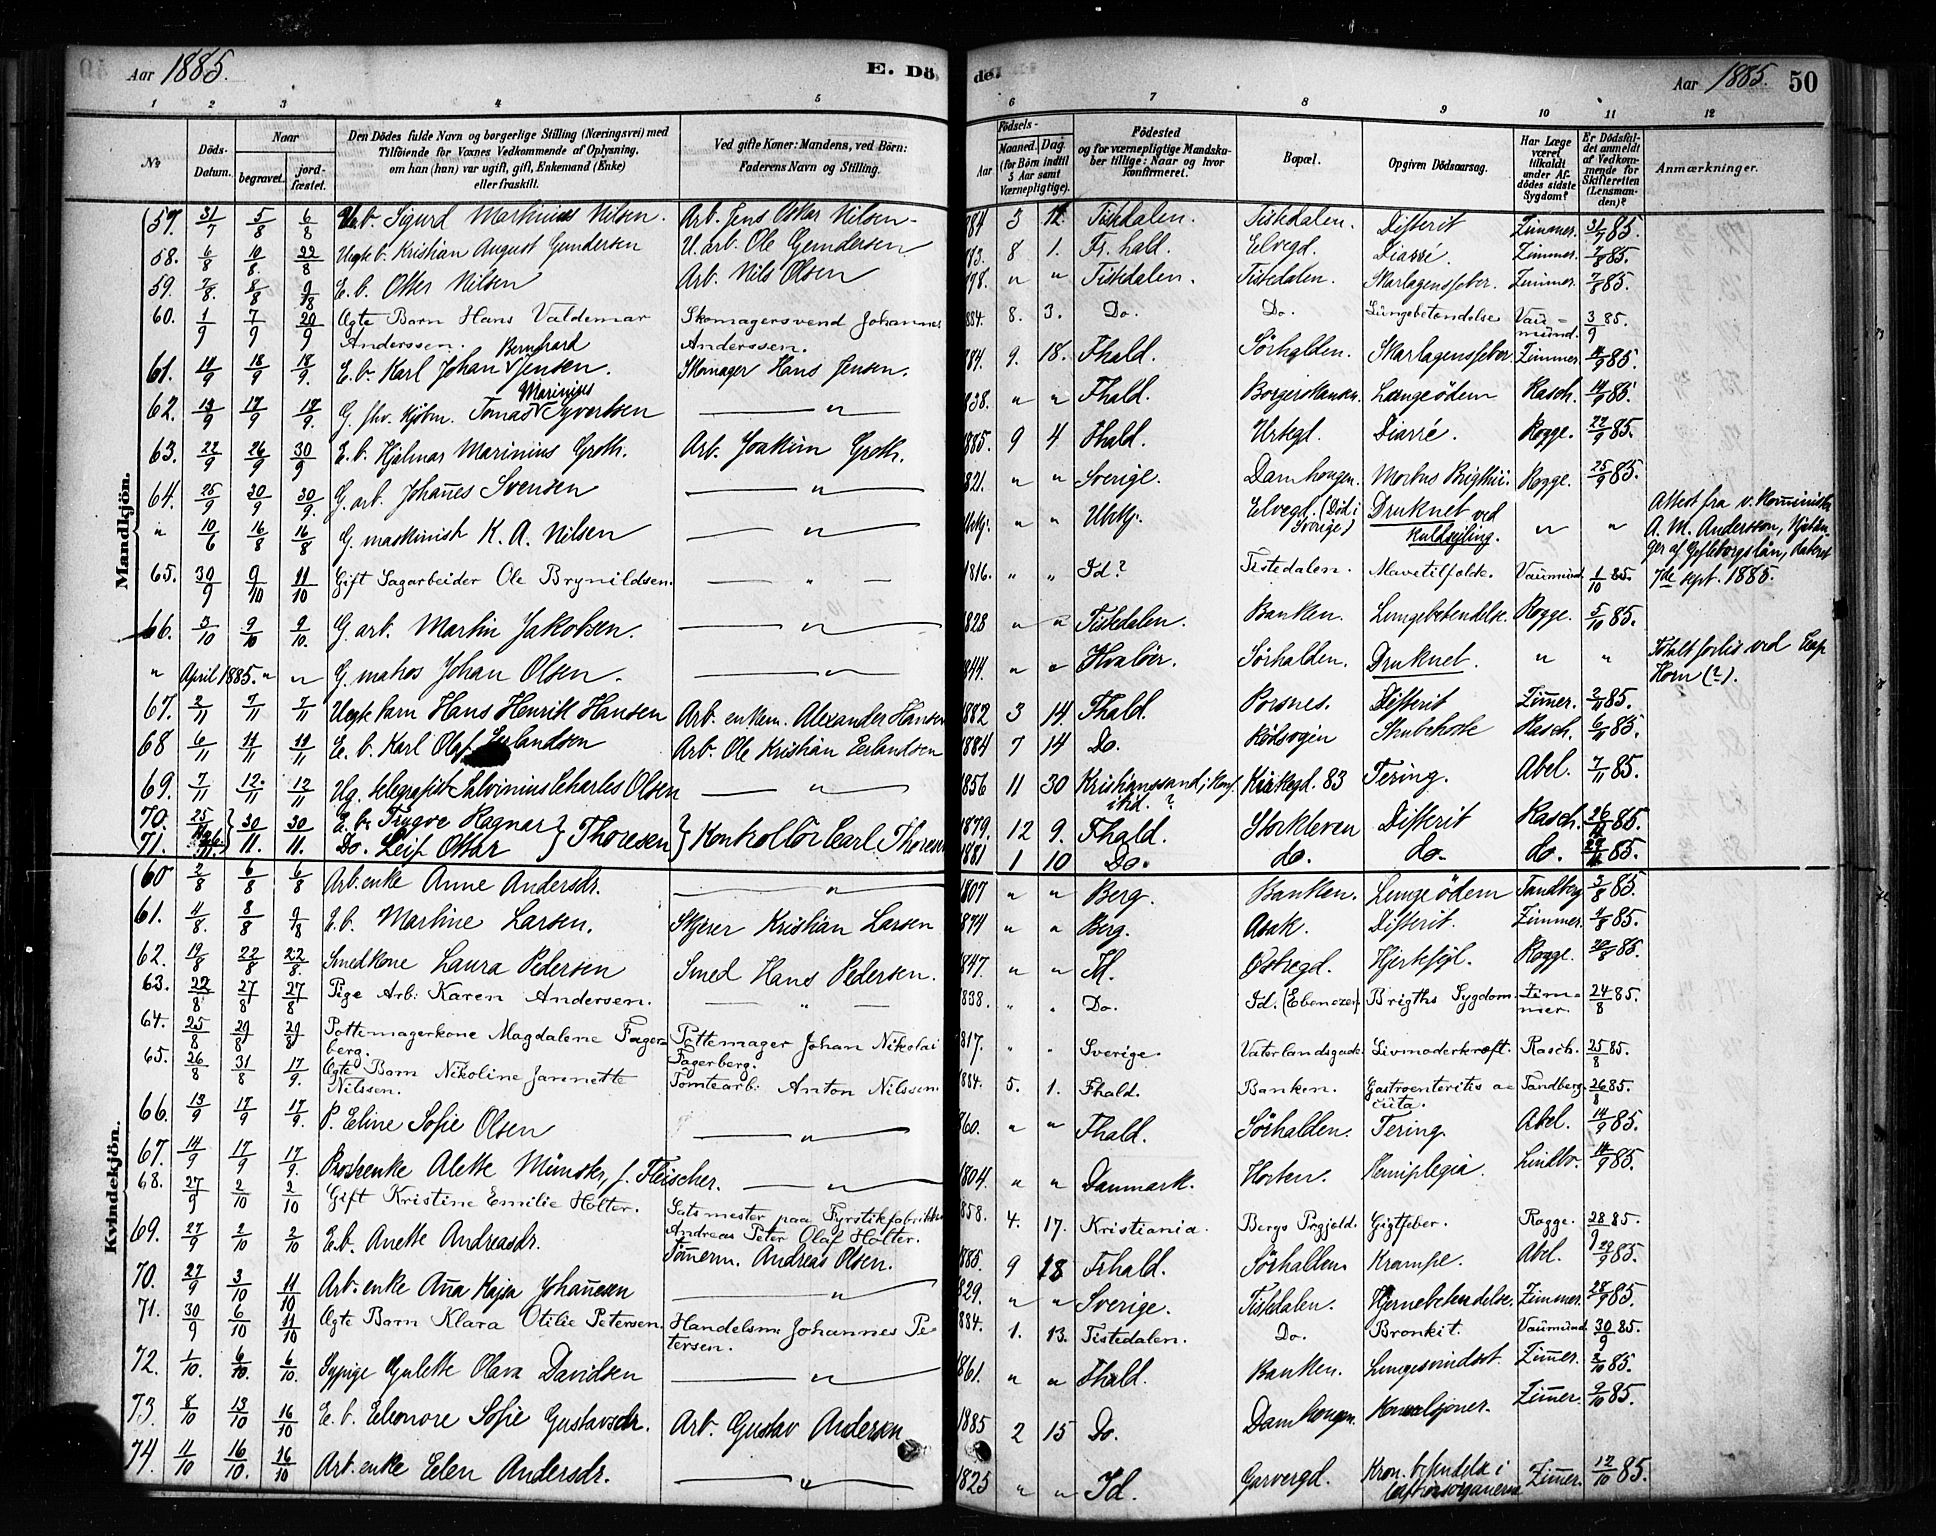 Aar 1885. E. Dö de. Aar 1885. 50
1 2 3 4 5 6 7 8 9 10 11 12
No Döds-Datum. Naar begravet. jord-fæstet. Den Dödes fulde Navn og borgerlige Stilling (Næringsvei) med Tilföiende for Voxnes Vedkommende af Oplysning, om han (hun) var ugift, gift, Enkemand (Enke) eller fraskilt. Ved gifte Koner: Mandens, ved Börn: Faderens Navn og Stilling. Födsels- Aar Maaned. Dag. (for Börn indtil 5 Aar samt Værnepligtige). Födested og for værnepligtige Mandskaber tillige: Naar og hvor Konfirmeret. Bopæl. Opgiven Dödsaarsag. Har Læge været tilkaldt under Afdödes sidste Sygdom? Er Dödsfaldet anmeldt af Vedkommende for Skifteretten (Lensmanden)? Anmærkninger.
Mandkjön.
57. 31/7 5/8 6/8 Sigurd Martinius Nilsen. Arb. Jens Oskar Nilsen 884 5 12. Tistedalen. Tistedalen. Difterit Zimmer. 31/7 85.
58. 6/8 10/8. 22/8 Uegte b. Kristian August Gundersen U. arb. Ole Gundersen 8 1. Fr. hald. Elvegd. Diarré. Zimmer. 7/8 85.
59. 7/8. 8/8 9/8 E. b. Otter Nilsen Arb. Nils Olsen 878. " " Tistedalen. Tistedalen. Skarlagensfeber. Zimmer. 7/8 85.
60. 1/9 7/9 20/9 Ægte Barn Hans Valdemar Anderssen. Skomagersvend Johannes Anderssen. 884. 8. 3. Do. Do. Lungebetændelse Vaumund. 3/9 85.
61. 11/9 18/9 18/9. E. b. Karl Johan Bernhard Jensen. Skomager Hans Jensen. 884. 9. 18. Fhald. Sörhalden. Skarlagensfeber Zimmer. 85.
62. 13/9 17/9 17/9. G. fhv. Kjöbm. Tomas Marinius Syvertsen " 838. " " Fhald. Lungeödem Rasch. 14/9 85.
63. 22/9 26/9 30/9 E. b. Hjalmar Marinius Groth. Arb. Joakim Groth. 1885. 9 4 Fhald. Urtegd. Diarré. Rogge. 22/9 85.
64. 25/9 30/9 30/9. G. arb. Johañes Svensen " 821. " " Sverige. Damhougen. Morbus Brigthii. Rogge. 25/9 85.
" 10/6 16/8 16/8 G. maskinist K. A. Nilsen " " " Elvegd. (Död i Sverige) Druknet ved Kuldsejling. " " Attest fra v. Kominister A. M. Andersson, af Gefleborgslän, dateret 7de sept. 1885.
65. 30/9 9/10 11/10 Gift Sagarbeider Ole Brynildsen. " 1816. " " Id? Tistedalen. Mavetilfælde. Vaumund 1/10 85.
66. 3/10 9/10 9/10. G. arb. Martin Jakobsen. " 1828 " " Tistedalen. Banken. Lungebetendelse. Rogge. 5/10 85.
" April 1885. " " G. matros Johan Olsen. " 844. " " Hvaløer. Sörhalden. Druknet. " " Totalt forlis ved Cap Horn (?).
67. 2/11 7/11 7/11 Uegte barn Hans Henrik Hansen Arb. enkem. Alexander Hansen 1882 3 14. Fhald. Difterit Zim̄er. 2/11 85.
68 6/11 11/11 11/11 E. b. Karl Olaf Erlandsen Arb. Ole Kristian Erlandsen 1884 7 14 Do. Strubehoste Rasch. 6/11 85.
69. 7/11 12/11 12/11 Ug. telegrafist Salvinius Charles Olsen " 1856 11 30 Kristianssand; Konf. itid. ? Kirkegd. 83 Tering. Abel. 7/11 85.
70. 25/11 30/11. 30/11. E. b. Trygve Ragnar } Thoresen } Kontollör Carl Thoresen 1879. 12 9. Fhald. Storkleven Difterit Rasch. 85.
71. Do. Leif Ottar 1881 1 10 Do. do. do. do. 85.
Kvindekjön.
60 2/8 6/8 6/8 Arb. enke Anne Andersdr. " 1807 " " Berg. Banken. Lungeödem Tandberg 3/8 85.
61. 4/8. 8/8 9/8 E. b. Martine Larsen. Skjerer Kristian Larsen 1874 " " Berg. Asak. Difterit. Zimmer. 85.
62. 19/8 22/8 22/8. Smedkone Laura Pedersen Smed Hans Pedersen. 1847. " " Id. Ostregd. Hjertefejl. Rogge. 20/8 85
63. 22/8 27/8 27/8 Pige Arb: Karen Andersen. " 838. " " Do. Id. (Ebenezer) Brigths Sygdom. Zimmer. 24/8 85.
64. 25/8 29/8 29/8 Pottemagerkone Magdalene Fagerberg. Pottemager Johan Nikolai Fagerberg. 817. " " Sverige. Vaterlandsgade. Livmoderkræft. Rasch. 25/8 85.
65. 26/8 31/8 17/9. Ægte Barn Nikoline Jannette Nilssen. Tomtearb: Anton Nilssen 1884. 5. 1. Fhald. Banken. Gastroenteritis acuta. Tandberg. 26/8 85.
66. 13/9 17/9 17/9. P. Eline Sofie Olsen " 860. " " Fhald. Sörhalden. Tering. Abel. 14/9 85.
67. 14/9 17/9 17/9. enke Alette Münster, f. Fleischer. " 1804. " " Danmark. Horten. Hemiplegia. 14/9 85.
68. 27/9 2/10 2/10 Gift Kristine Emilie Holter. Satsmester paa Fyrstikfabrikken Andreas Peter Olaf Holter. 858. 4. 17. Kristiania. Bergs Prgjeld. Gigtfeber. Rogge. 28/9 85.
69. 27/9 2/10 2/10 E. b. Anette Andreasdr. Töm̄erm. Andreas Olsen. 1885. 9 18 Frhald. Sörhalden Krampe. Abel. 29/9 85.
70. 27/9 3/10 11/10 Arb. enke Añа Kajsa Johañesen " 829. " " Sverige. Tistedalen. Hjernebetendelse. Zimmer. 28/9 85.
71. 30/9 6/10 11/10 Ægte Barn Klara Otilie Petersen. Handelsm: Johannes Petersen. 884. 1. 13. Tistedalen. Do. Bronkit. Vaumund. 30/9 85.
72. 1/10. 6/10. 6/10. Sypige Gulette Olava Davidsen " 1861. " " Fhald. Banken. Lungesvindsot. Zim̄er. 2/10 85.
73. 8/10 13/10 16/10 E. b. Eleonore Sofie Gustavsdr. Arb. Gustav Andersen 1885 2 15 Do. Damhougen. Konvulsjoner. Zim̄er. 9/10 85.
74. 11/10 16/10. 16/10 Arb. enke Elen Andersdr. " 1825 " " Id. Garvergd. Kron. betendelse i Zim̄er. 12/10 85.